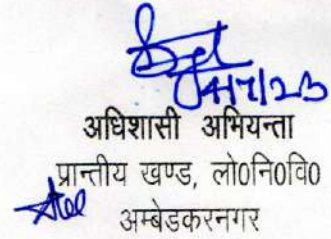 4/7/23
अधिशासी अभियन्ता
प्रान्तीय खण्ड, लो0नि0वि0
अम्बेडकरनगर